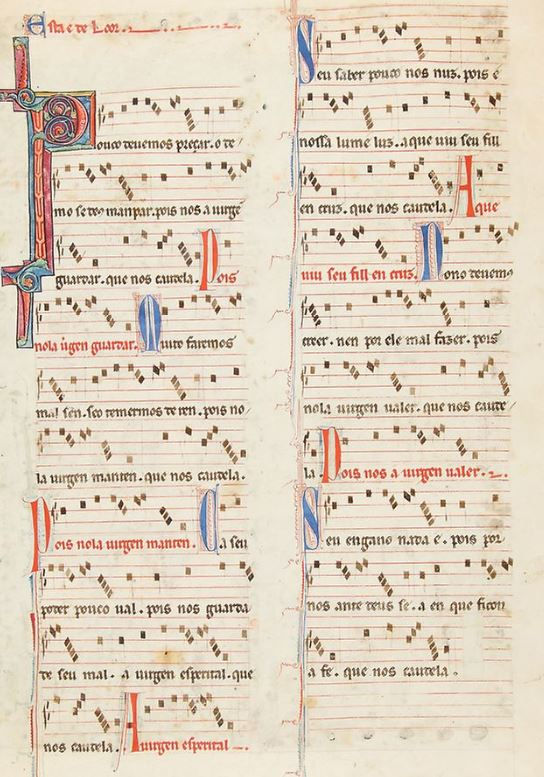 Esta é de Loor.
Pouco deuemos preçar. o de
mo se do manpar. pois nos a uirgẽ
guardar. que nos caudela. Pois
nola uirgen guardar. Muito faremos
mal sen. seo temermos de ren. pois no
la uirgen manten. que nos caudela.
Pois nola uirgen manten. Ca seu
poder pouco ual. pois nos guarda
de seu mal. a uirgen esperital. que
nos caudela. A uirgen esperital
Seu saber pouco nos nuz. pois é
nossa lume luz. aque uiu seu fill
en cruz. que nos caudela. Aque
uiu seu fill en cruz. Nono deuemos
creer. nen por ele mal fazer. pois
nola uirgen ualer. que nos caude
la. Pois nos a uirgen ualer.
Seu engano nada é. pois por
nos ante deus se. a en que ficou
a fe. que nos caudela.